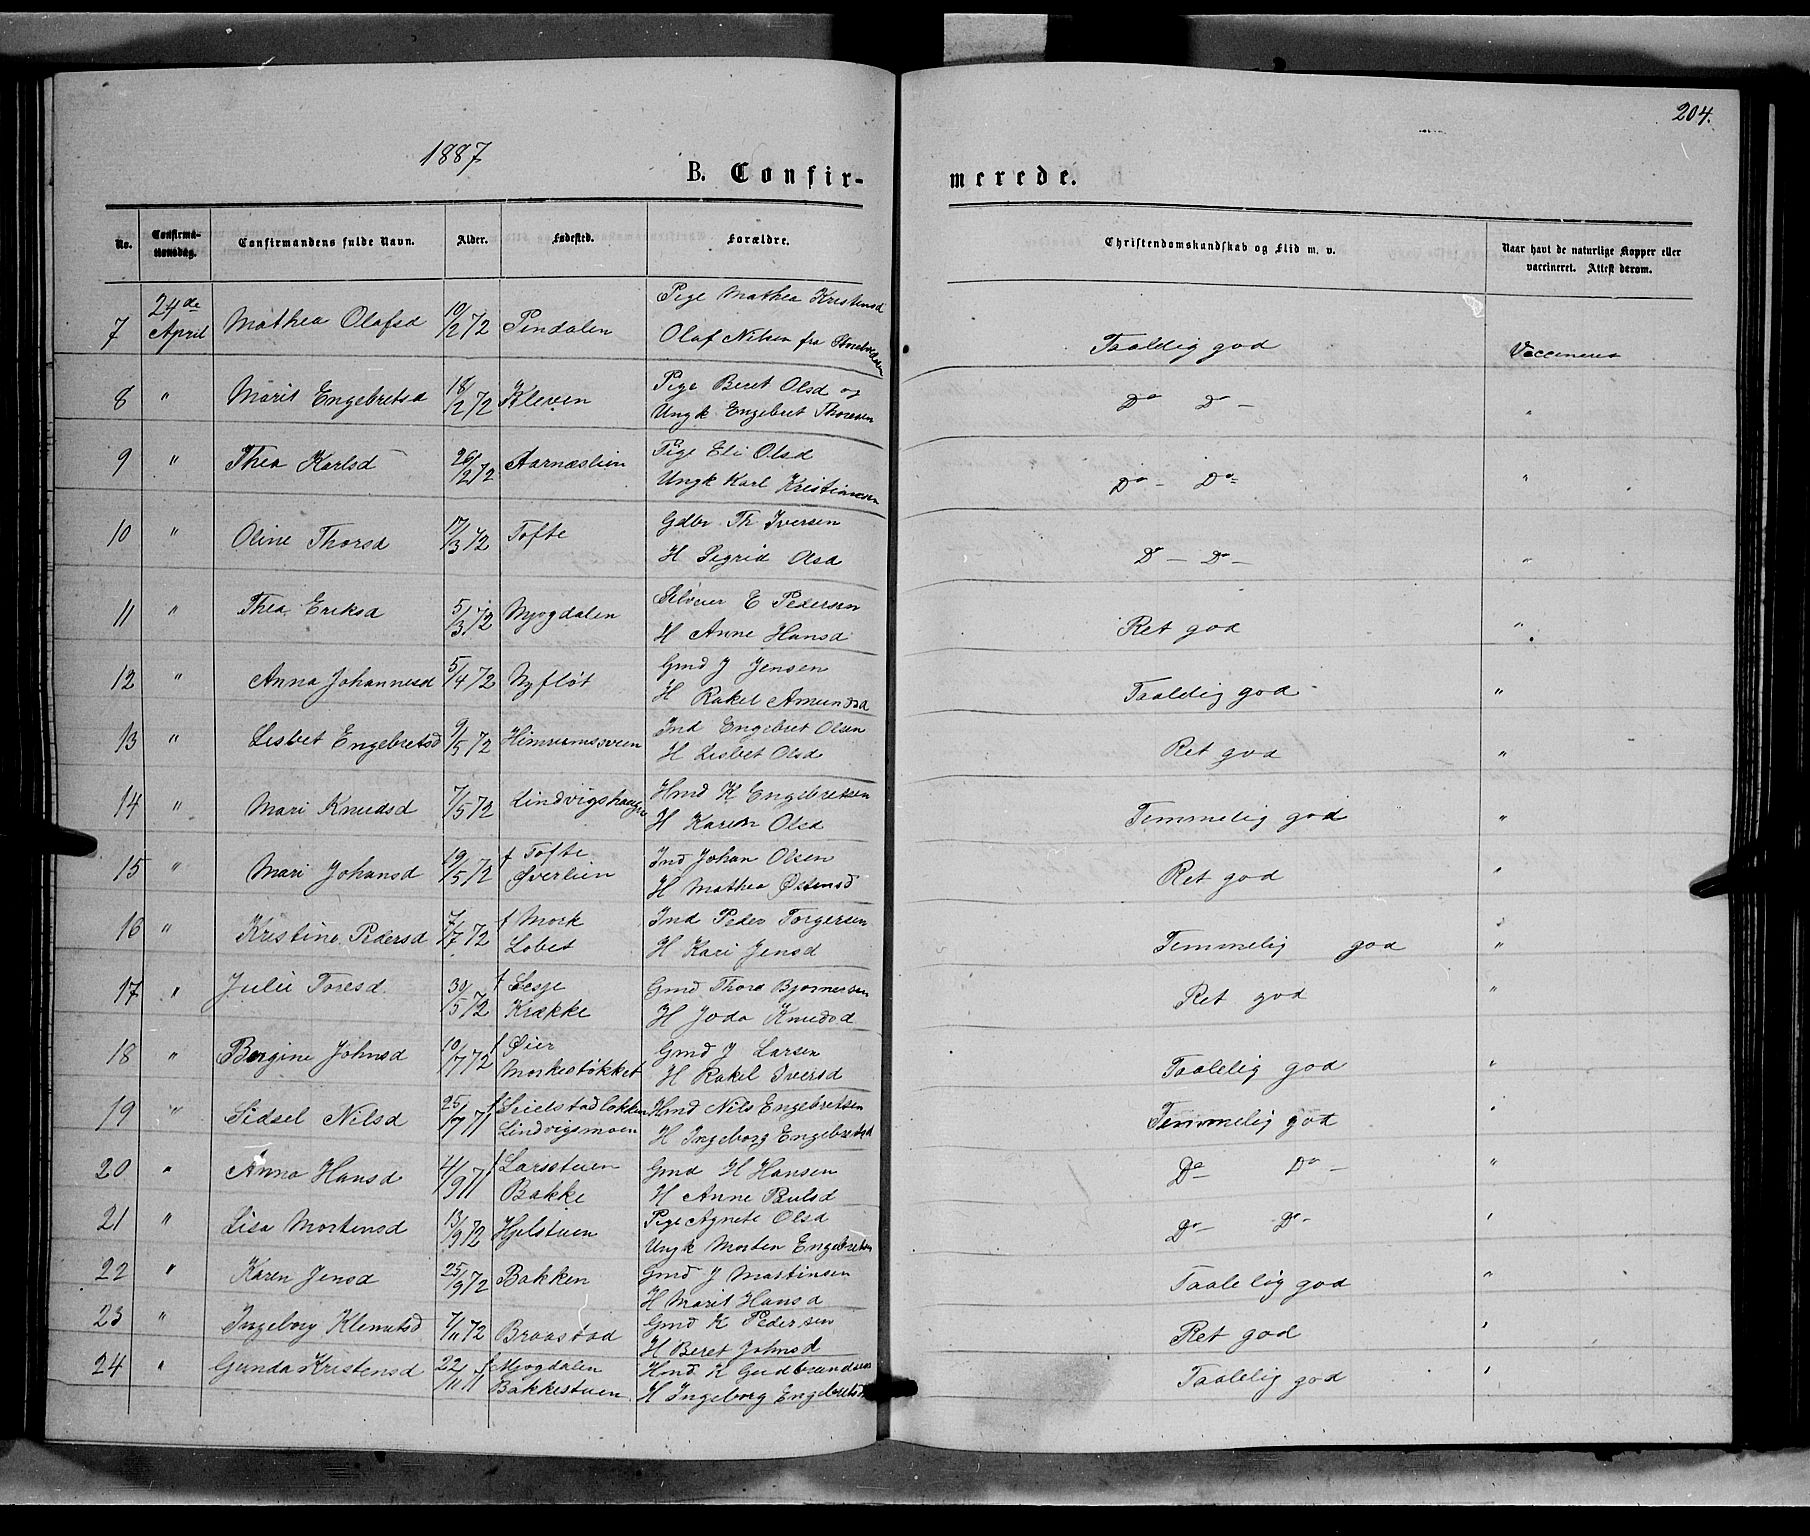 204.
1887
B. Confir-
merede.
No. Confirma-tionsdag. Confirmandens fulde Navn. Alder. Fødested. Forældre. Christendomskundskab og Flid m. v. Naar havt de naturlige Kopper eller vaccineret. Attest derom.
24de Pige Mathea Kristensd
7 April Mathea Olafsd 19/2 72 Pindalen Olaf Nilsen fra Taaldig god Vaccineret
Pige Beret Olsd og
8 " Marit Engebretsd 18/2 72 Kleven Ungk Engebret Thoresen Do Do — "
Pige Eli Olsd
9 " Thea Karlsd 26/2 72 Aarnæslien Ungk Karl Kristiansen Do — Do "
Gdbr Th Iversen
10 " Oline Thorsd 17/3 72 Tofte H Sigrid Olsd Do — Do — "
Selveier E Pedersen
11 " Thea Eriksd 5/3 72 Myogdalen H Anne Hansd Ret god "
Gmd J Jensen
12 " Anna Johannesd 5/4 72 Nyfløt H Rakel Amundsd Taaldig god "
Ind Engebret Olsen
13 " Lisbet Engebretsd 9/5 72 H Lisbet Olsd Ret god "
Hmd K Engebretsen
14 " Mari Knudsd 7/5 72 Lindvigshaugen H Karen Olsd Temmelig god "
f Tofte Ind Johan Olsen
15 " Mari Johansd 19/5 72 Øverlien H Mathea Østensd Ret god "
f Mork Ind Peder Torgersen
16 " Kristine Pedersd 7/7 72 Løbet H Kari Jensd Temmelig god "
f Lesje Gmd Thore Bjørnersen
17 " Julie Toresd 30/5 72 Krække H Joda Knudsd Ret god "
f Øier Gmd J Larsen
18 " Bergine Johnsd 10/7 72 Morkestøkket H Rakel Iversd Taalelig god "
f Seielstadløkken Hmd Nils Engebretsen
19 " Sidsel Nilsd 25/9 71 Lindvigsmoen H Ingeborg Engebretsd Temmelig god "
f Larsstuen Gmd H Hansen
20 " Anna Hansd 4/9 71 Bakke H Anne Paulsd Do Do — "
Pige Agnete Olsd
21 " Lisa Mortensd 13/9 72 Hjelstuen Ungk Morten Engebretsen Do — Do — "
Gmd J Martinsen
22 " Karen Jensd 25/9 72 Bakken H Marit Hansd Taalelig god "
Gmd K Pedersen
23 " Ingeborg Klemetsd 7/11 72 Braastad H Beret Johnsd Ret god "
f Myogdalen Hmd K Gudbrandsen
24 " Gunda Kristensd 22/11 71 Bakkestuen H Ingeborg Engebretsd Taalelig god "